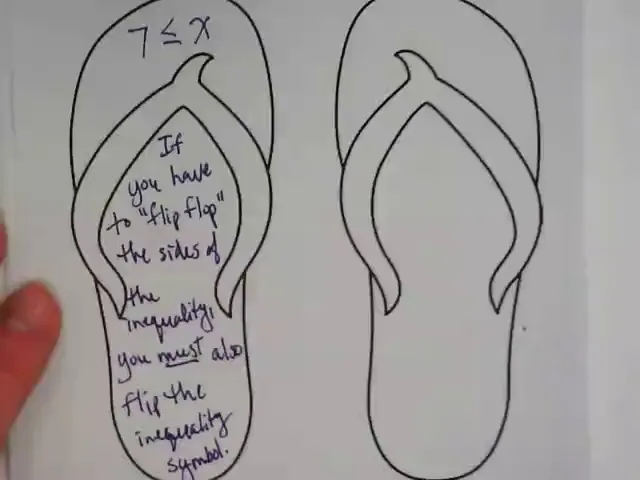 7 ≤ x
If
you have
to "flip flop"
the sides of
the
inequality,
you must also
flip the
inequality
symbol.